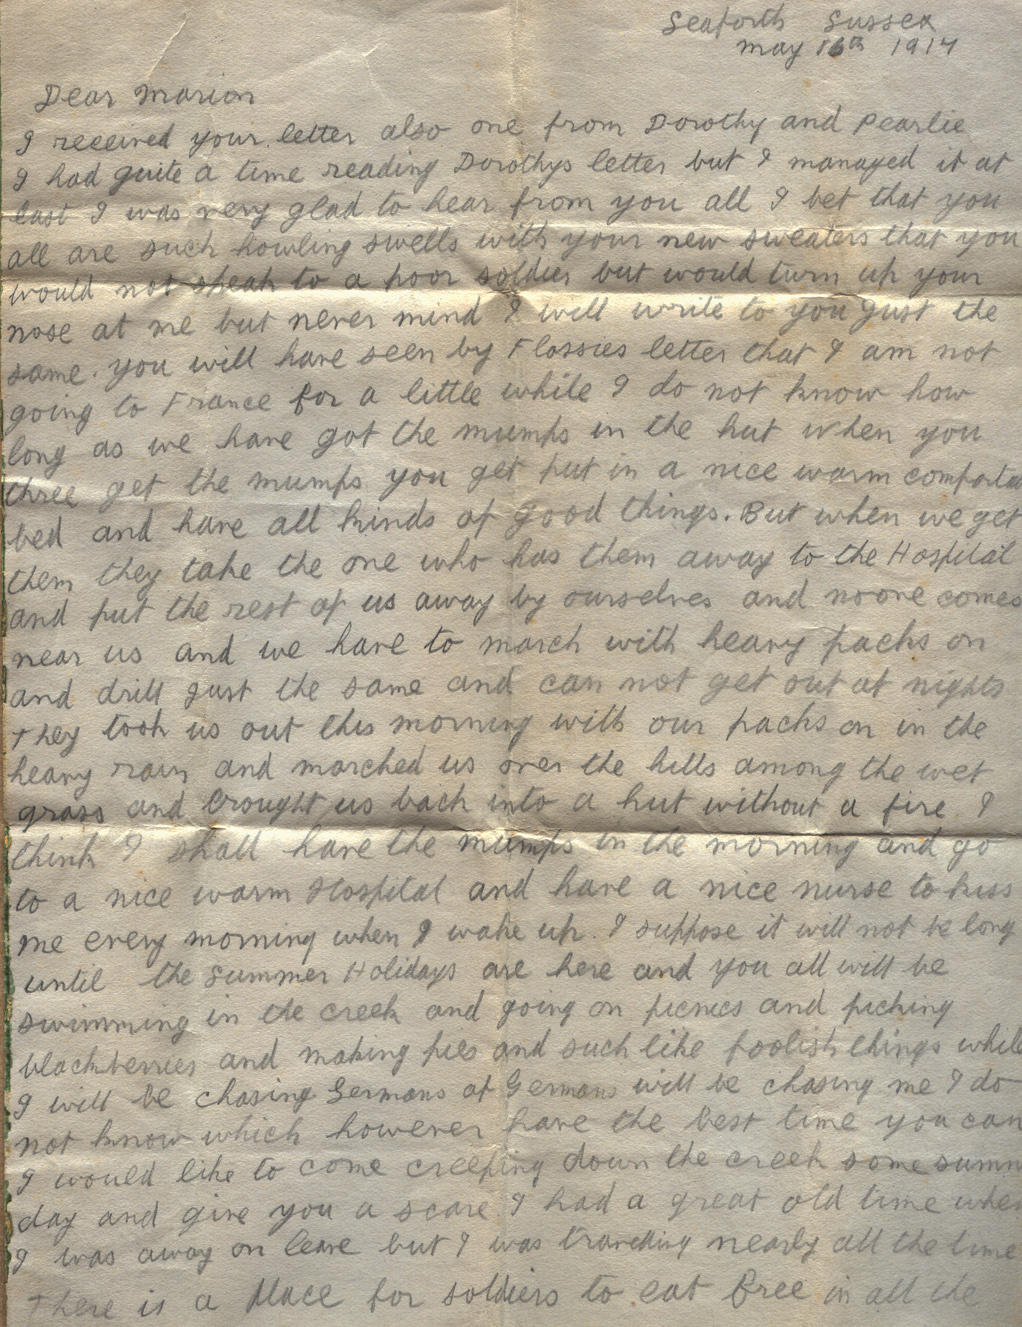 Seaforth Sussex
May 16th 1917
Dear Marion
I received your letter also one from Dorothy and Pearlie
I had quite a time reading Dorothys letter but I managed it at
last I was very glad to hear from you all I bet that you
all are such howling swells with your new sweaters that you
would not speak to a poor soldier but would turn up your
nose at me but never mind I will write to you just the
same. you will have seen by Flossies letter that I am not
going to France for a little while I do not know how
long as we have got the mumps in the hut when you
three get the mumps you get put in a nice warm comforta
bed and have all kinds of good things. But when we get
them they take the one who has them away to the Hospital
and put the rest of us away by ourselves and noone comes
near us and we have to march with heavy packs on
and drill just the same and can not get out at nights
They took us out this morning with our packs on in the
heavy rain and marched us over the hills among the wet
grass and brought us back into a hut without a fire I
think I shall have the mumps in the morning and go
to a nice warm Hospital and have a nice nurse to kiss
me every morning when I wake up. I suppose it will not be long
until the Summer Holidays are here and you all will be
swimming in the creek and going on picnics and picking
blackberries and making pies and such like foolish things while
I will be chasing Germans or Germans will be chasing me I do
not know which however have the best time you can
I would like to come creeping down the creek some summ
day and give you a scare I had a great old time when
I was away on leave but I was travelling nearly all the time
There is a place for soldiers to eat free in all the